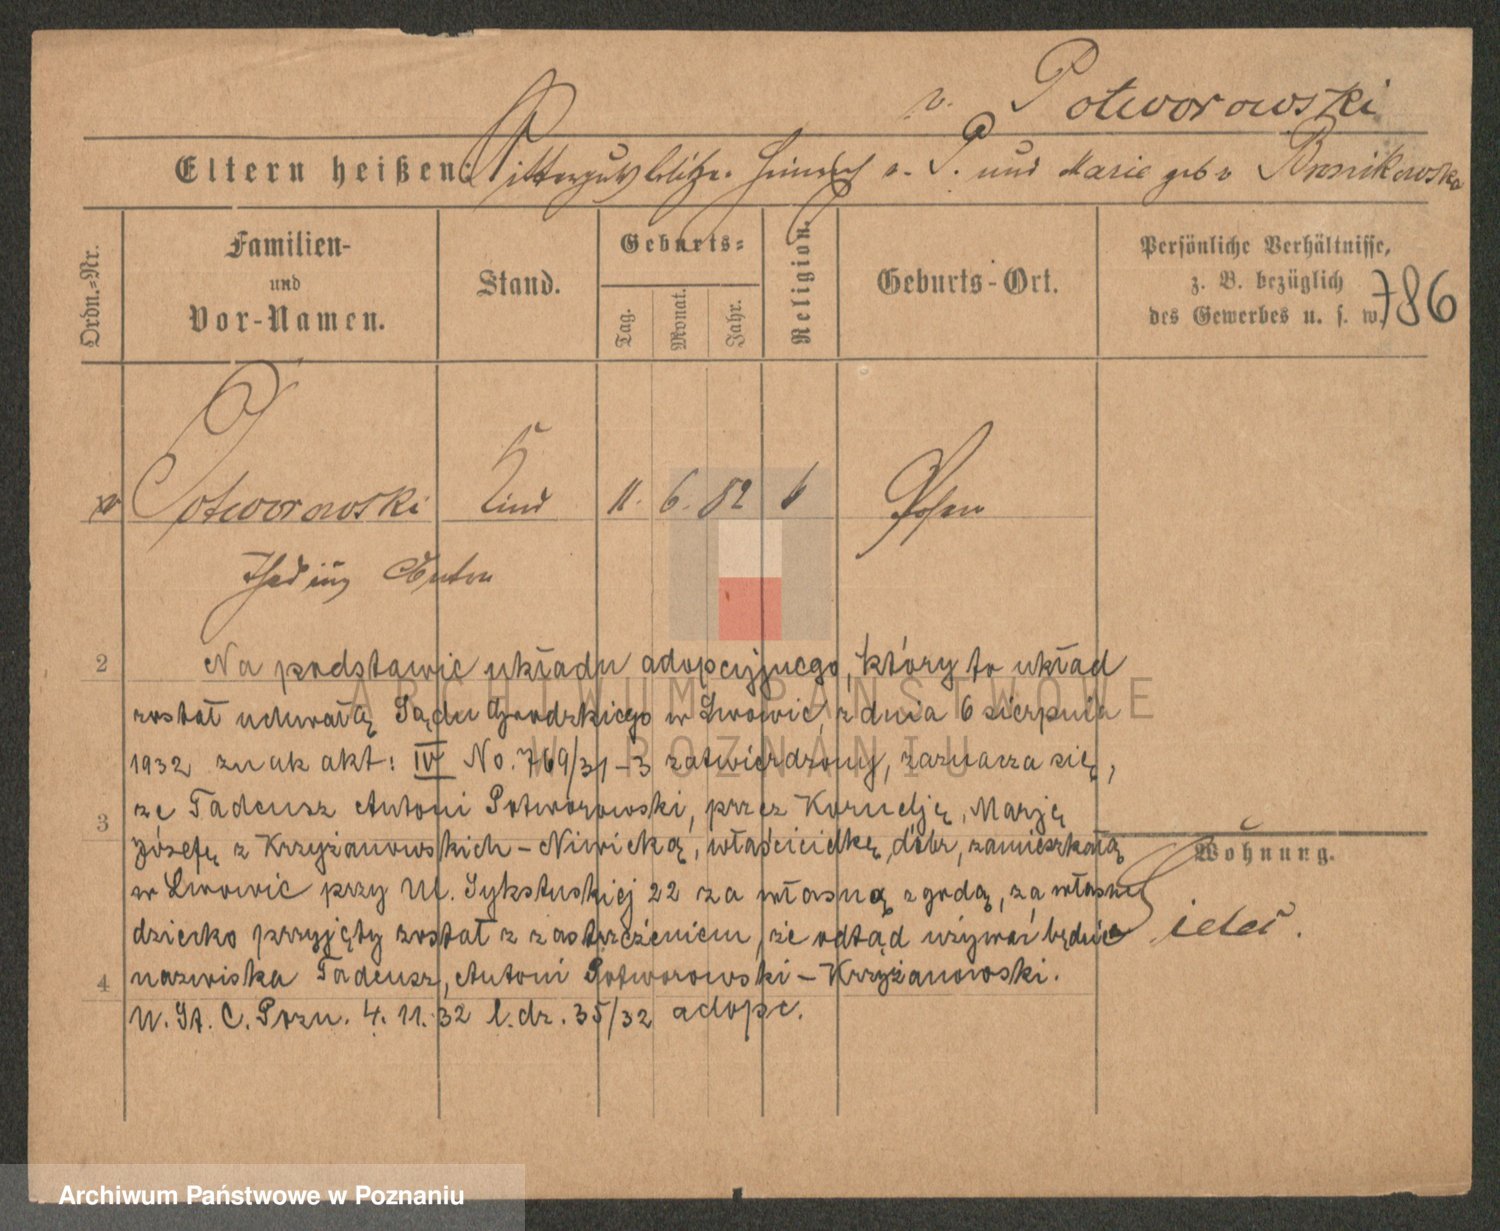 v. Potworowski
Eltern heißen: Rittergutsbesitzer Heinrich v. P. und Marie geb v Bronikowska
Ordn.=Nr.
Familien-
und
Vor-Namen.
Stand.
Geburts=
Tag.
Monat.
Jahr.
Religion.
Geburts-Ort.
Persönliche Verhältnisse,
z. B. bezüglich
des Gewerbes u. s. w.
786
v Potworowski Kind 11. 6. 82 k Posen
Anton
2
Na podstawie układu adopcyjnego, który to układ
został uchwałą Sądu Grodzkiego w Lwowie, z dnia 6 sierpnia
1932 znak akt: IV No. 769/31-3 zatwierdzony, zaznacza się,
że Tadeusz Antoni Potworowski, przez Kornelję, Marję
3
Józefę z Krzyżanowskich - Niwicką, właścicielkę dóbr, zamieszkałą
w Lwowie przy Ul. Sykstuskiej 22 za własną zgodą, za własne
dziecko przyjęty został z zastrzeżeniem, że odtąd używać będzie
4
nazwiska Tadeusz, Antoni Potworowski - Krzyżanowski.
U. St. C. Pozn. 4. 11. 32 l. dz. 35/32 adopc.
Wohnung.
ARCHIWUM PAŃSTWOWE
W POZNANIU
Archiwum Państwowe w Poznaniu